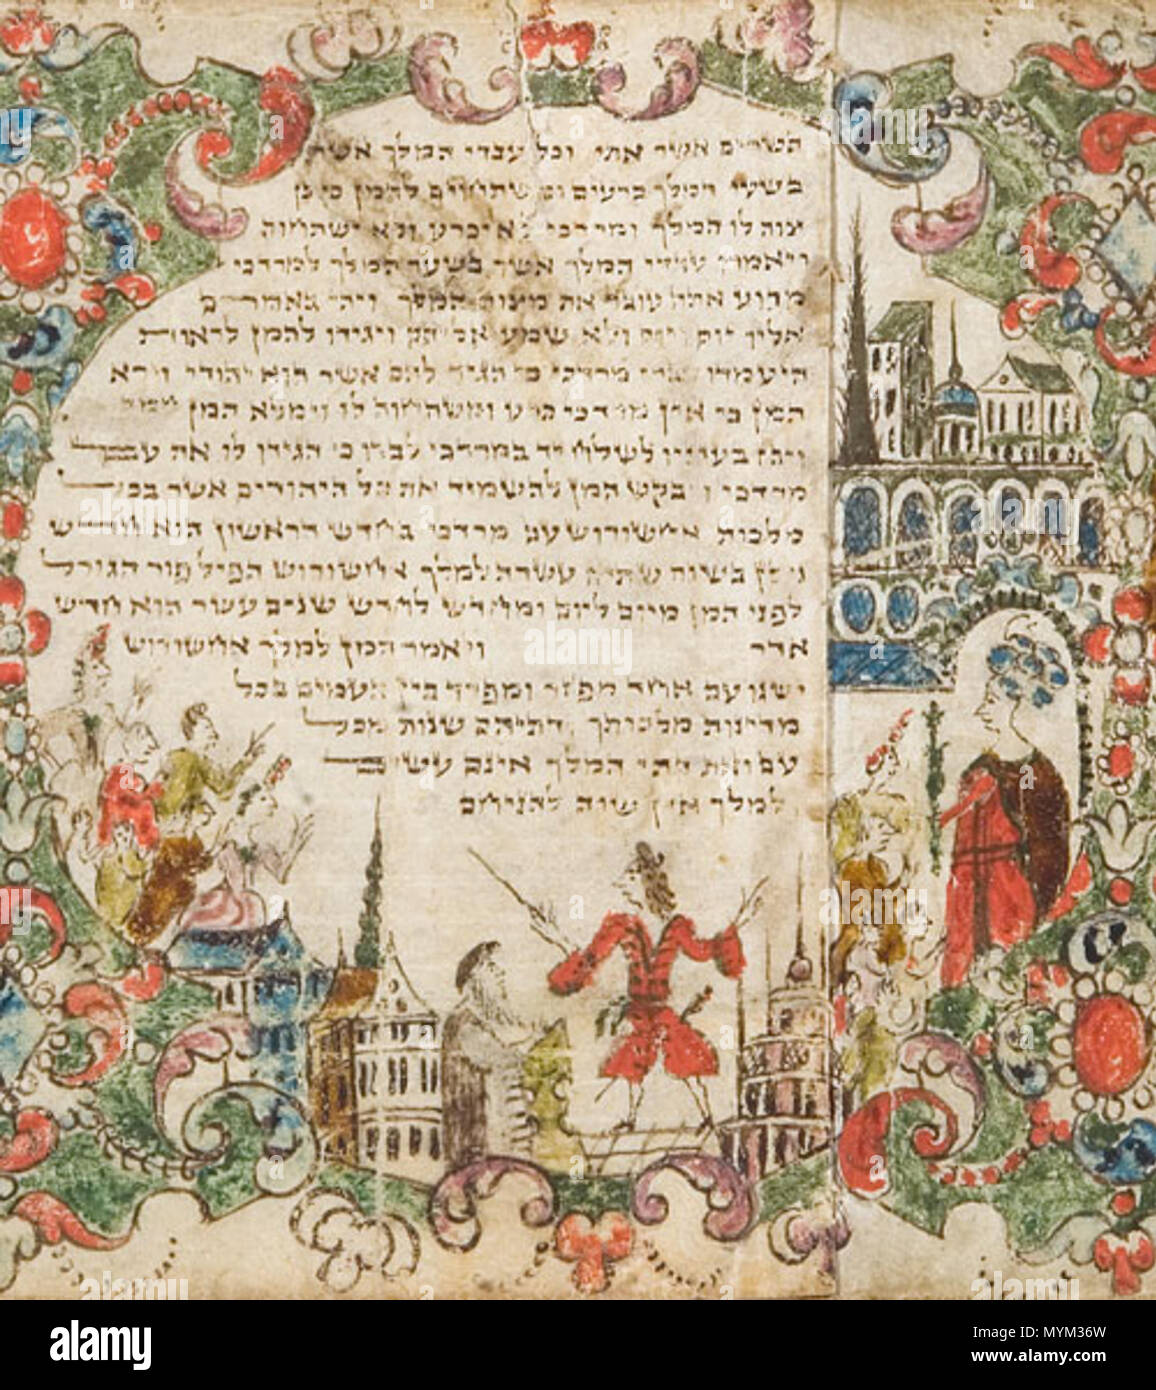 השרים אשר אתו וכל עבדי המלך אשר
בשער המלך כרעים ומשתחוים להמן כי כן
צוה לו המלך ומרדכי לא יכרע ולא ישתחוה
ויאמרו עבדי המלך אשר בשער המלך למרדכי
מדוע אתה עובר את מצות המלך ויהי באמרם
אליו יום ויום ולא שמע אליהם ויגידו להמן לראות
היעמדו דברי מרדכי כי הגיד להם אשר הוא יהודי וירא
המן כי אין מרדכי כרע ומשתחוה לו וימלא המן חמה
ויבז בעיניו לשלוח יד במרדכי לבדו כי הגידו לו את עם
מרדכי ויבקש המן להשמיד את כל היהודים אשר בכל
מלכות אחשורוש עם מרדכי בחדש הראשון הוא חדש
ניסן בשנת שתים עשרה למלך אחשורוש הפיל פור הגורל
לפני המן מיום ליום ומחדש לחדש שנים עשר הוא חדש
אדר ויאמר המן למלך אחשורוש
ישנו עם אחד מפזר ומפרד בין העמים בכל
מדינות מלכותך ודתיהם שנות מכל
עם ואת דתי המלך אינם עשים
למלך אין שוה להניחם
alamy
alamy
Image ID: MYM36W
www.alamy.com